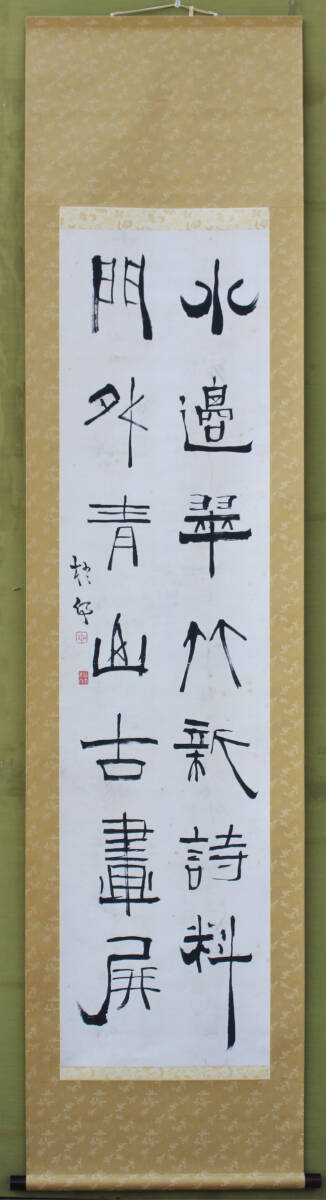 水邊翠竹新詩料
門外青山古畫屏